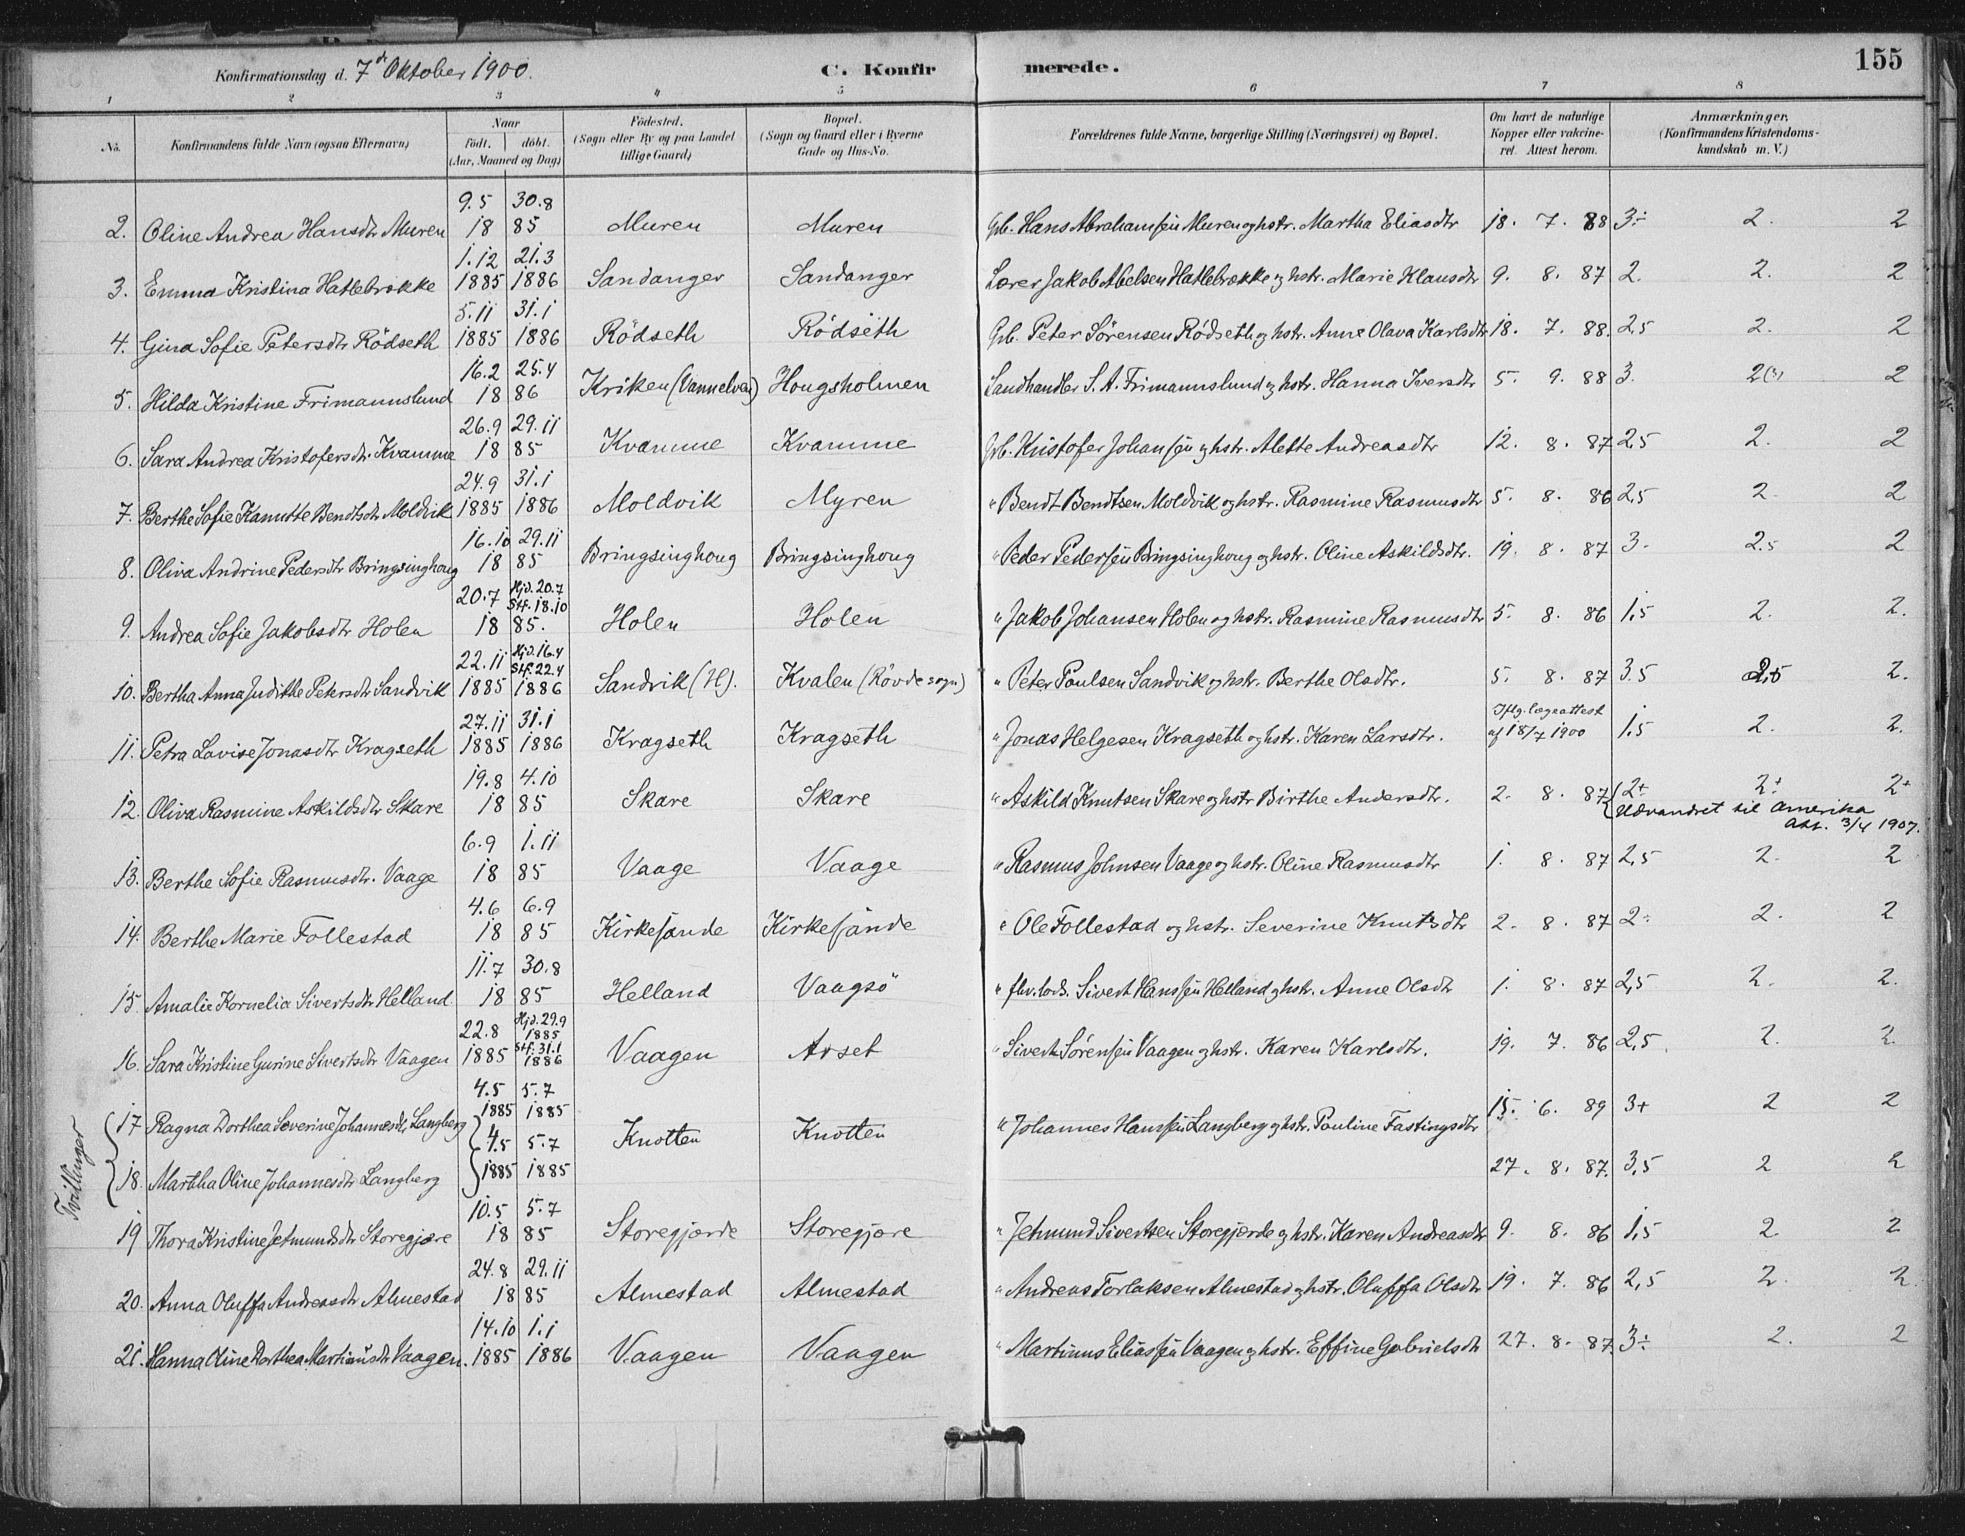 Konfirmationsdag d. 7de Oktober 1900.
C. Konfirmerede.
155
1 2 3 4 5 6 7 8
No.
Konfirmandens fulde Navn (ogsaa Efternavn)
Naar
födt. döbt.
(Aar, Maaned og Dag)
Födested.
(Sogn eller By og paa Landet
tillige Gaard)
Bopæl.
(Sogn og Gaard eller i Byerne
Gade og Hus-No.
Forældrenes fulde Navne, borgerlige Stilling (Næringsvei) og Bopæl.
Om havt de naturlige
Kopper eller vakcine-
ret. Attest herom.
Anmærkninger.
(Konfirmandens Kristendoms-
kundskab m. V.)
9.5 30.8
2. Oline Andrea Hansdtr Muren 18 85 Muren Muren Gb. Hans Abrahamsen Muren og hstr. Martha Eliasdtr 18. 7. 88 3÷ 2. 2
1.12 21.3
3. Emma Kristina Hatlebrække 1885 1886 Sandanger Sandanger Lærer Jakob Abelsen Hatlebrække og hstr. Marie Klausdtr 9. 8. 87 2. 2. 2
5.11 31.1
4. Gina Sofie Petersdtr Rödseth 1885 1886 Rödseth Rödseth Gb. Peter Sørensen Rødseth og hstr. Anne Olava Karlsdtr 18. 7. 88. 2,5 2. 2
16.2 25.4
5. Hilda Kristine Frimannslund 18 86 Kriken (Vannelven) Hougsholmen Landhandler S. A. Frimannslund og hstr. Hanna Iversdtr 5. 9. 88 3. 2(3) 2
26.9 29.11
6. Sara Andrea Kristofersdtr. Kvamme 18 85 Kvamme Kvamme Gb. Kristofer Johansen og hstr. Alette Andreasdtr 12. 8. 87 2,5 2. 2
24.9 31.1
7. Berthe Sofie Kanutte Bendtsdtr Moldvik 1885 1886 Moldvik Myren " Bendt Bendtsen Moldvik og hstr. Rasmine Rasmusdtr 5. 8. 86 2,5 2. 2
16.10 29.11
8. Oliva Andrine Pedersdtr Bringsinghoug 18 85 Bringsinghoug Bringsinghoug " Peder Pedersen Bringsinghoug og hstr. Oline Askildsdtr. 19. 8. 87 3. 2.5 2
20.7 Hjd. 20.7
Stf. 18.10
9. Andrea Sofie Jakobsdtr Holen 18 85. Holen Holen " Jakob Johansen Holen og hstr. Rasmine Rasmusdtr 5. 8. 86 1,5 2. 2.
22.11 Hjd. 16.4
Stf. 22.4
10. Bertha Anna Judithe Petersdtr Sandvik 1885 1886 Sandvik (H). Kvalen (Røvde sogn) " Peter Poulsen Sandvik og hstr. Berthe Olsdtr. 5. 8. 87 3.5 2,5 2.
27.11 31.1 Iflg. lægeattest
11. Petra Lavise Jonasdtr Kragseth 1885 1886 Kragseth Kragseth " Jonas Helgesen Kragseth og hstr. Karen Larsdtr. af 18/7 1900 1,5 2. 2.
19.8 4.10
12. Oliva Rasmine Askildsdtr Skare 18 85 Skare Skare " Askild Knutsen Skare og hstr Birthe Andersdtr. 2. 8. 87 2+ 2+ 2+
Udvandret til Amerika
Att. 3/4 1907.
6.9 1.11
13. Berthe Sofie Rasmusdtr. Vaage 18 85 Vaage Vaage " Rasmus Johnsen Vaage og hstr. Oline Rasmusdtr 1. 8. 87 2,5 2. 2
4.6 6.9
14. Berthe Marie Follestad 18 85 Kirkefjande Kirkefjande " Ole Follestad og hstr. Severine Knutsdtr 2. 8. 87 2÷ 2. 2
11.7 30.8
15. Amalie Kornelia Sivertsdtr Helland. 18 85 Helland Vaagsö " fhv. lods. Sivert Hansen Helland og hstr. Anne Olsdtr 1. 8. 87 2,5 2. 2.
22.8 Hjd. 29.9
1885
16. Sara Kristine Gurine Sivertsdtr Vaagen 1885 Stf. 31.1 1886 Vaagen Arset " Sivert Sørensen Vaagen og hstr. Karen Karlsdtr. 19. 7. 86 2,5 2. 2.
4.5 5.7
1885 1885
Tvillinger
17 Ragna Dorthea Severine Johannesdtr Langberg Knotten Knotten " Johannes Hansen Langberg og hstr. Pauline Fastingsdtr 15. 6. 89 3+ 2 2
4.5 5.7
18. Martha Oline Johannesdtr Langberg 1885 1885 27. 8. 87. 3,5 2 2
10.5 5.7
19 Thora Kristine Jetmundsdtr Storegjære 18 85 Storegjærde Storegjære " Jetmund Sivertsen Storegjærde og hstr. Karen Andreasdtr 9. 8. 86 1,5 2 2
24.8 29.11
20. Anna Oluffa Andreasdtr Almestad 18 85 Almestad Almestad " Andreas Torlaksen Almestad og hstr. Oluffa Olsdtr 19. 7. 86 2,5 2. 2
14.10 1.1
21. Hanna Oline Dorthea Martinusdtr Vaagen. 1885 1886 Vaagen Vaagen " Martinus Eliassen Vaagen og hstr. Effine Gabrielsdtr 27. 8. 87. 3÷ 2. 2